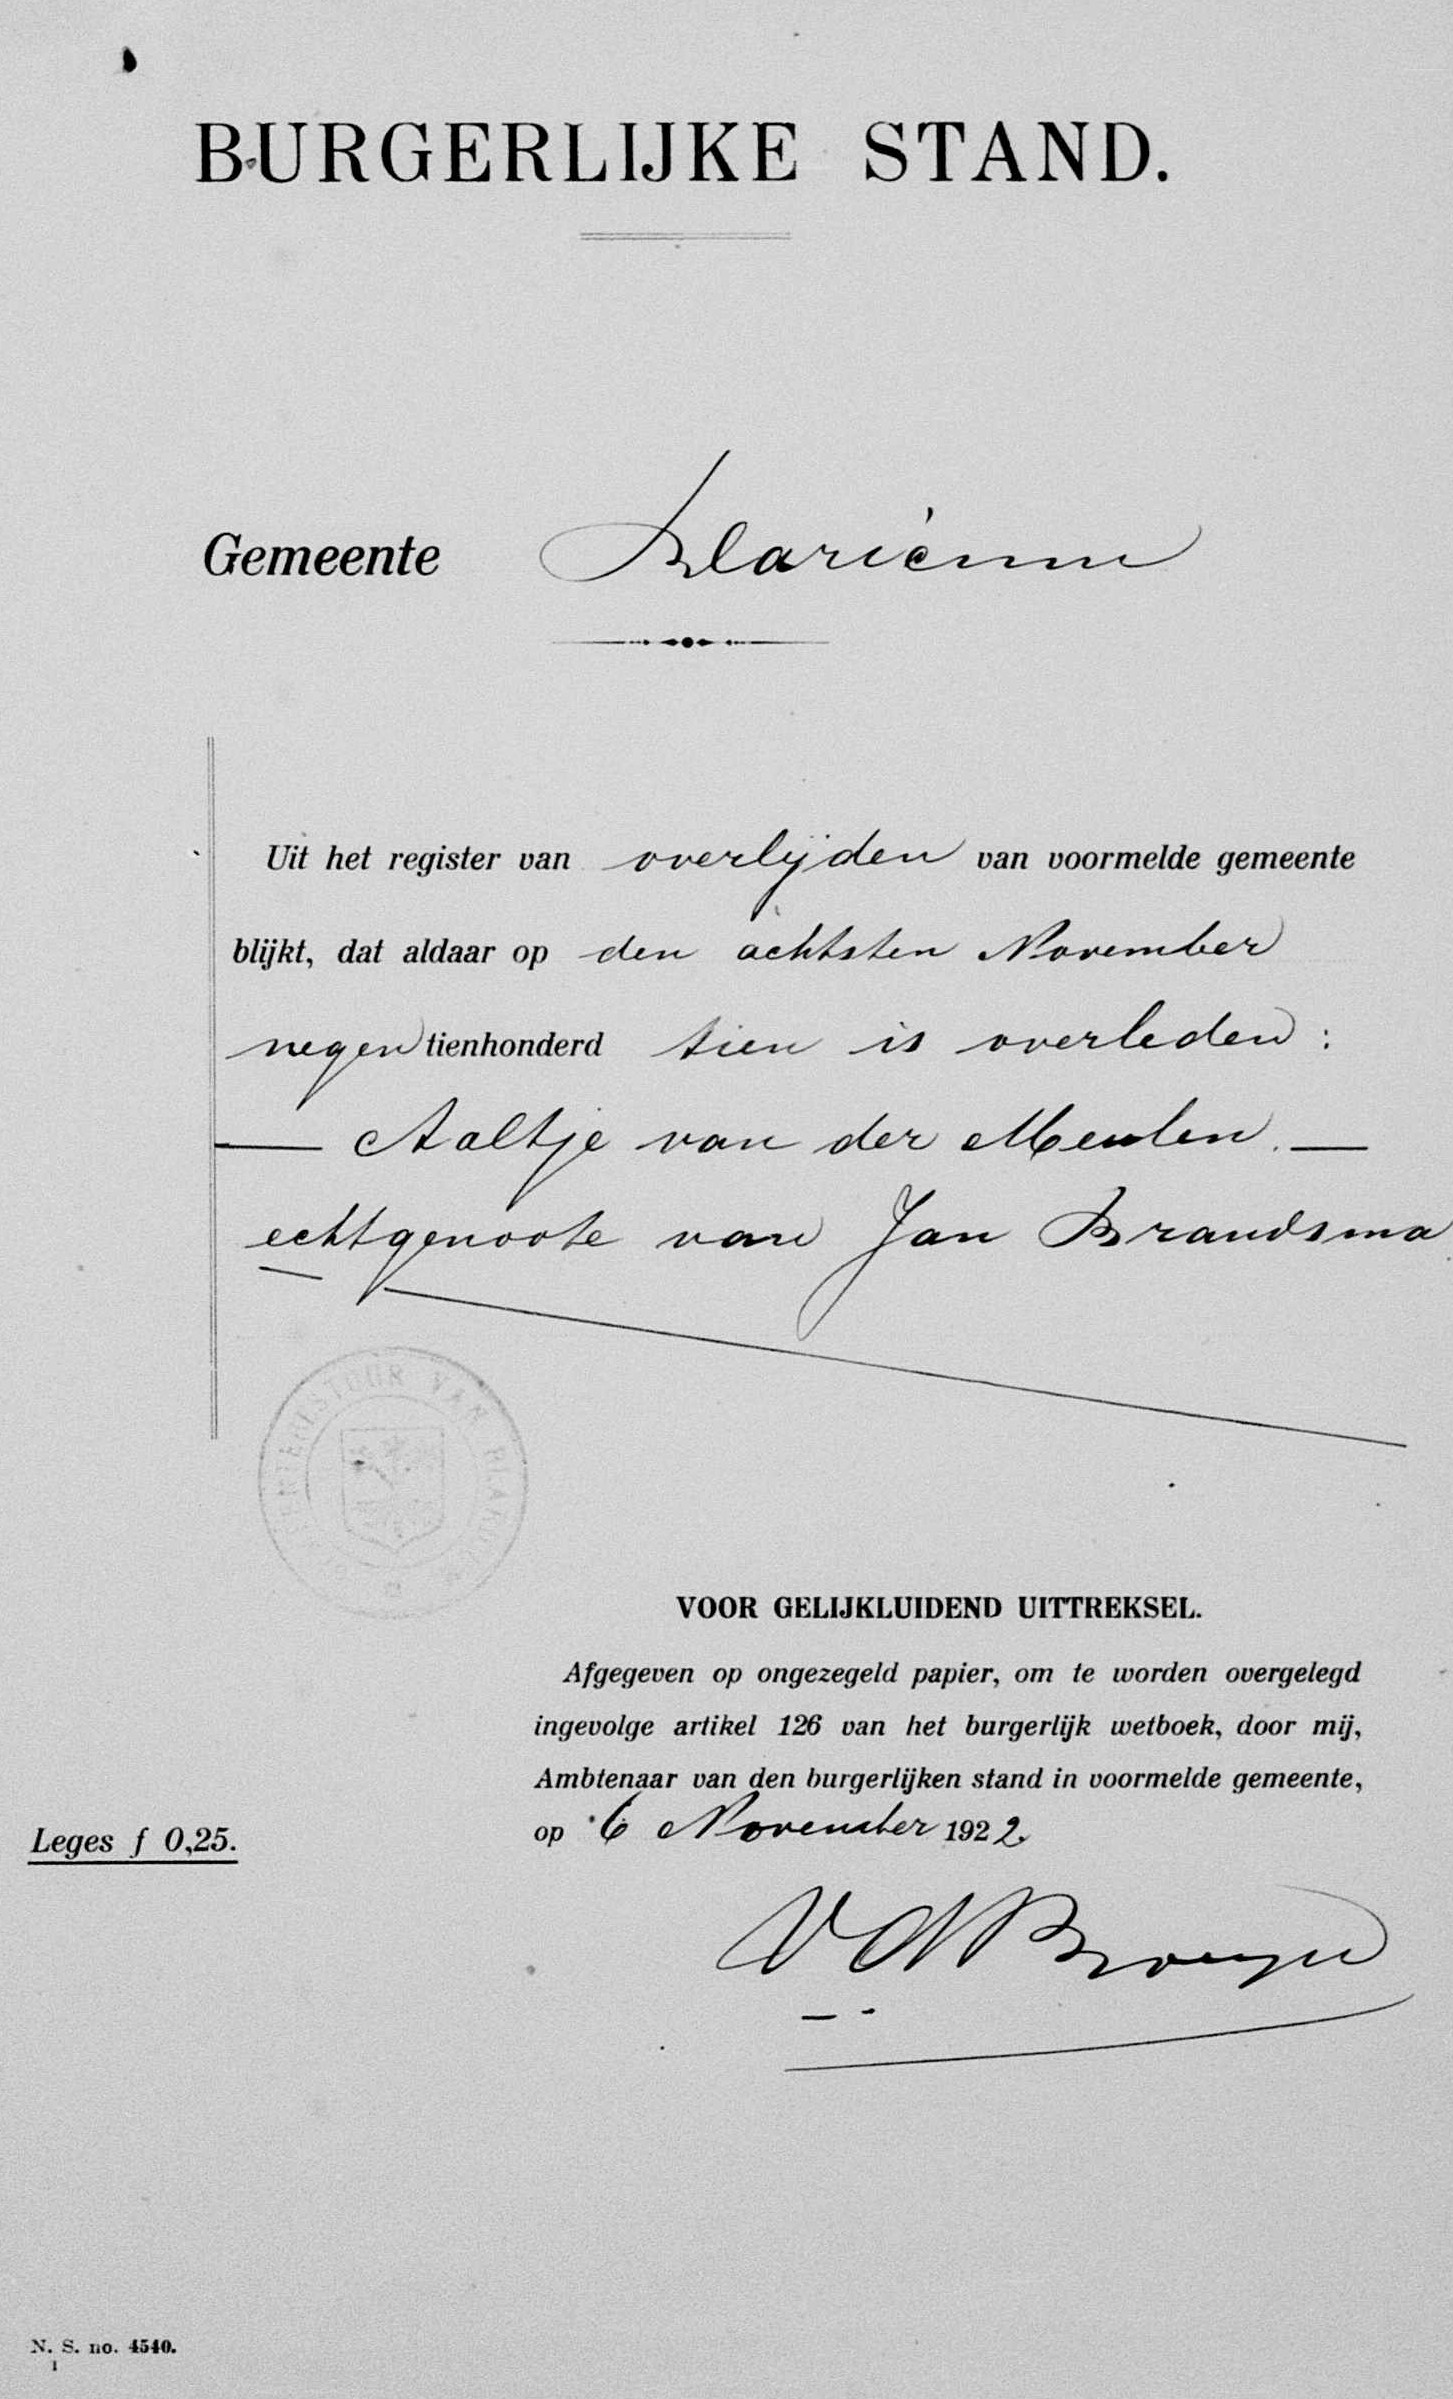 BURGERLIJKE STAND.
Gemeente Blaricum
Uit het register van overlijden van voormelde gemeente
blijkt, dat aldaar op den achtsten November
negentienhonderd tien is overleden:
— Aaltje van der Meulen. —
echtgenoote van Jan Brandsma
GEMEENTEBESTUUR VAN BLARICUM
VOOR GELIJKLUIDEND UITTREKSEL.
Afgegeven op ongezegeld papier, om te worden overgelegd
ingevolge artikel 126 van het burgerlijk wetboek, door mij,
Ambtenaar van den burgerlijken stand in voormelde gemeente,
op 6 November 1922
Leges f 0,25.
N. S. no. 4540.
1